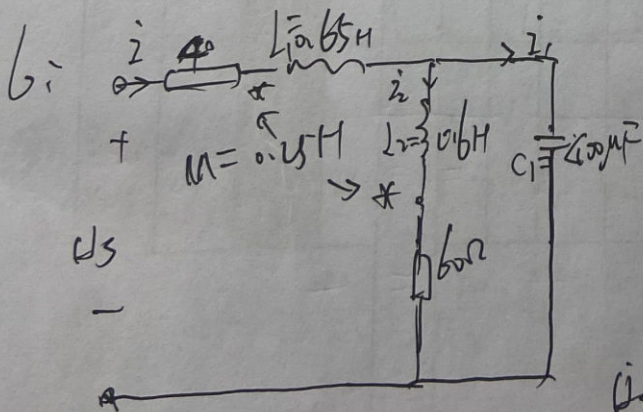 6:
i
40
L₁=0.65H
i₁
+
*
i₂
M=0.25H
L₂=0.6H
C₁=
μF
*
Us
60Ω
-